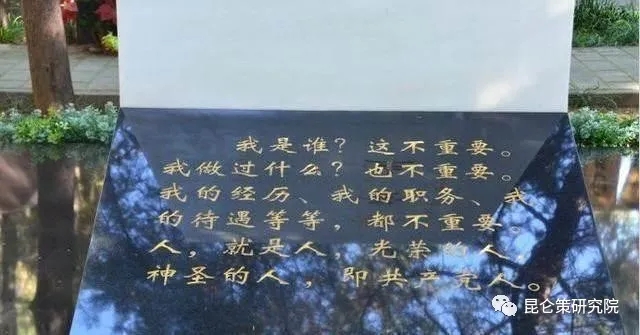 我是谁？这不重要。
我做过什么？也不重要。
我的经历、我的职务、我
的待遇等等，都不重要。
人，就是人，光荣的人，
神圣的人，即共产党人。
昆仑策研究院